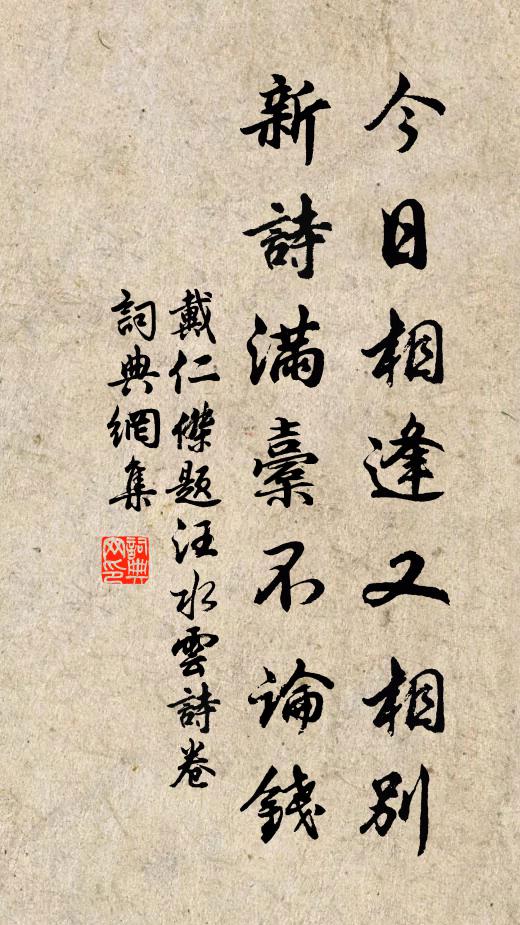 今日相逢又相別
新詩滿橐不論錢
戴仁傑題汪水雲詩卷
詞典網集
詞典网印